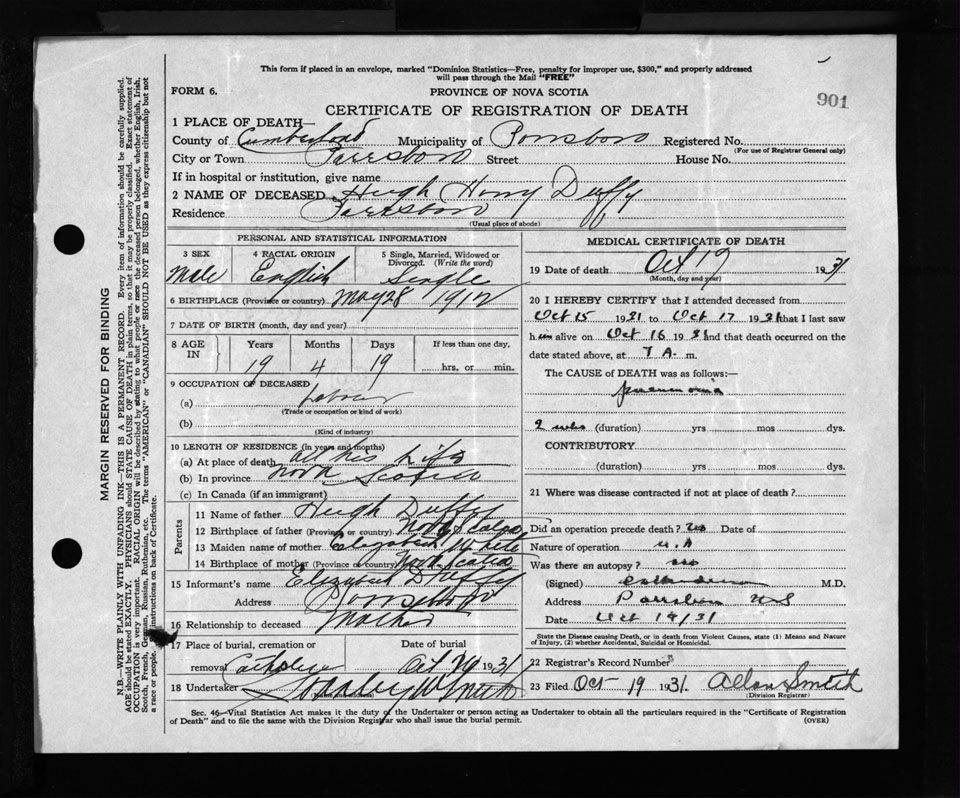 This form if placed in an envelope, marked "Dominion Statistics—Free, penalty for improper use, $300," and properly addressed
will pass through the Mail "FREE"
FORM 6.
PROVINCE OF NOVA SCOTIA
901
CERTIFICATE OF REGISTRATION OF DEATH
1 PLACE OF DEATH—
County of Cumberland Municipality of Parrsboro Registered No.
(For use of Registrar General only)
City or Town Parrsboro Street House No.
If in hospital or institution, give name
2 NAME OF DECEASED Hugh Henry Duffy
Residence Parrsboro
(Usual place of abode)
PERSONAL AND STATISTICAL INFORMATION
3 SEX Male
4 RACIAL ORIGIN English
5 Single, Married, Widowed or Divorced. (Write the word) Single
6 BIRTHPLACE (Province or country) May 28 1912
7 DATE OF BIRTH (month, day and year)
8 AGE IN Years Months Days If less than one day,
19 4 19 hrs. or min.
9 OCCUPATION OF DECEASED
(a) Labourer
(Trade or occupation or kind of work)
(b)
(Kind of industry)
10 LENGTH OF RESIDENCE (in years and months)
(a) At place of death all his life
(b) In province Nova Scotia
(c) In Canada (if an immigrant)
Parents
11 Name of father Hugh Duffy
12 Birthplace of father (Province or country) Nova Scotia
13 Maiden name of mother Elizabeth White
14 Birthplace of mother (Province or country) Nova Scotia
15 Informant's name Elizabeth Duffy
Address Parrsboro
16 Relationship to deceased Mother
17 Place of burial, cremation or removal Catholic Date of burial Oct 20 1931
18 Undertaker Stanley W Smith
MEDICAL CERTIFICATE OF DEATH
19 Date of death Oct 17 1931
(Month, day and year)
20 I HEREBY CERTIFY that I attended deceased from
Oct 15 1931 to Oct 17 1931 that I last saw
him alive on Oct 16 1931 and that death occurred on the
date stated above, at 7 A. m.
The CAUSE of DEATH was as follows:—
pneumonia
2 wks (duration) yrs mos dys.
CONTRIBUTORY
(duration) yrs mos dys.
21 Where was disease contracted if not at place of death?
Did an operation precede death? no Date of
Nature of operation
Was there an autopsy? no
(Signed) M.D.
Address Parrsboro NS
Date Oct 19/31
State the Disease causing Death, or in death from Violent Causes, state (1) Means and Nature
of Injury, (2) whether Accidental, Suicidal or Homicidal.
22 Registrar's Record Number
23 Filed Oct 19 1931. Allan Smith
(Division Registrar)
Sec. 46—Vital Statistics Act makes it the duty of the Undertaker or person acting as Undertaker to obtain all the particulars required in the "Certificate of Registration
of Death" and to file the same with the Division Registrar who shall issue the burial permit. (OVER)
MARGIN RESERVED FOR BINDING
N.B.—WRITE PLAINLY WITH UNFADING INK—THIS IS A PERMANENT RECORD. Every item of information should be carefully supplied.
AGE should be stated EXACTLY. PHYSICIANS should STATE CAUSE OF DEATH in plain terms, so that it may be properly classified. Exact statement of
OCCUPATION is very important. RACIAL ORIGIN will be described by stating to what people or race the deceased person belonged, whether English, Irish,
Scotch, French, German, Russian, Ruthenian, etc. The terms "AMERICAN" or "CANADIAN" SHOULD NOT BE USED as they express citizenship but not
a race or people. See instructions on back of Certificate.